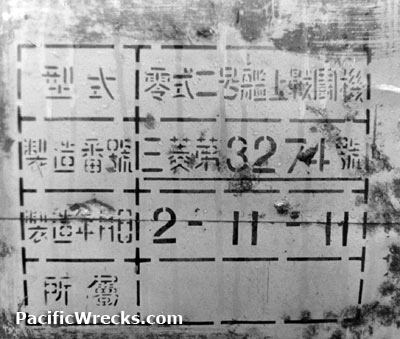 型式 零式二号艦上戰鬪機
製造番號 三菱第3274號
製造年月日 2-11-11
所屬
PacificWrecks.com